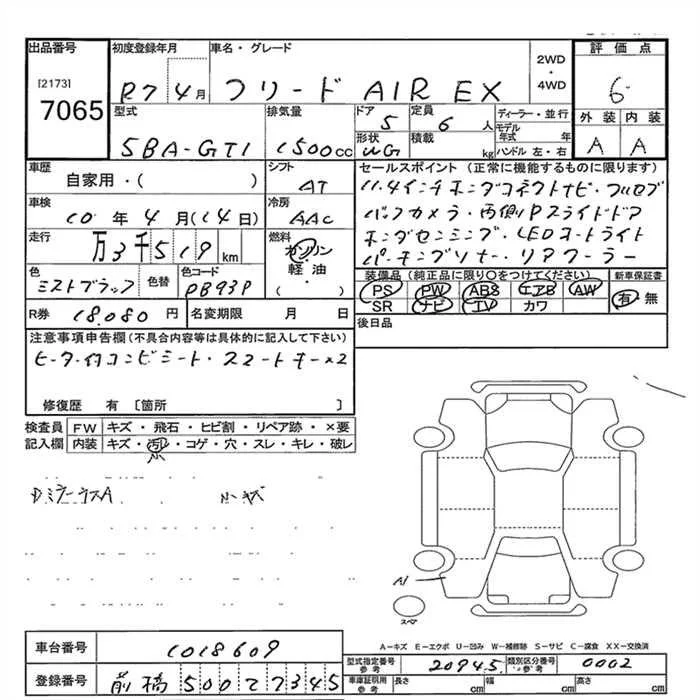 出品番号
[2173]
7065
初度登録年月
R7 4月
車名・グレード
フリード AIR EX
2WD
・
4WD
評価点
6
外装 内装
A A
型式
5BA-GT1
排気量
1500cc
ドア
5
定員
6 人
形状
WG
積載
kg
ディーラー・並行
モデル年式 年
ハンドル 左・右
車歴
自家用・( )
シフト
AT
車検
10年4月(14日)
冷房
AAC
走行
万3千519km
燃料
ガソリン
・
軽油
( )
色
ミストブラック
色替
色コード
PB93P
R券 18,080円
名変期限 月 日
セールスポイント(正常に機能するものに限ります)
11.4インチホンダコネクトナビ・フルセグ
バックカメラ・両側Pスライドドア
ホンダセンシング・LEDオートライト
パーキングソナー・リアクーラー
装備品(純正品に限り〇をつけてください)
新車保証書
PS PW ABS エアB AW
SR ナビ TV カワ
有・無
後日品
注意事項申告欄(不具合内容等は具体的に記入して下さい)
ヒーター付コンビシート・スマートキー×2
修復歴 有 [箇所 ]
検査員記入欄
FW キズ・飛石・ヒビ割・リペア跡・×要
内装 キズ・汚レ・コゲ・穴・スレ・キレ・破レ
小
小キズ
A1
スペア
A-キズ E-エクボ U-凹み W-補修跡 S-サビ C-腐食 XX-交換済
車台番号
1018609
登録番号
前橋500 て7345
型式指定番号 参考
20945
類別区分番号 参考
0002
車庫証明用 参考
長さ cm
幅 cm
高さ cm